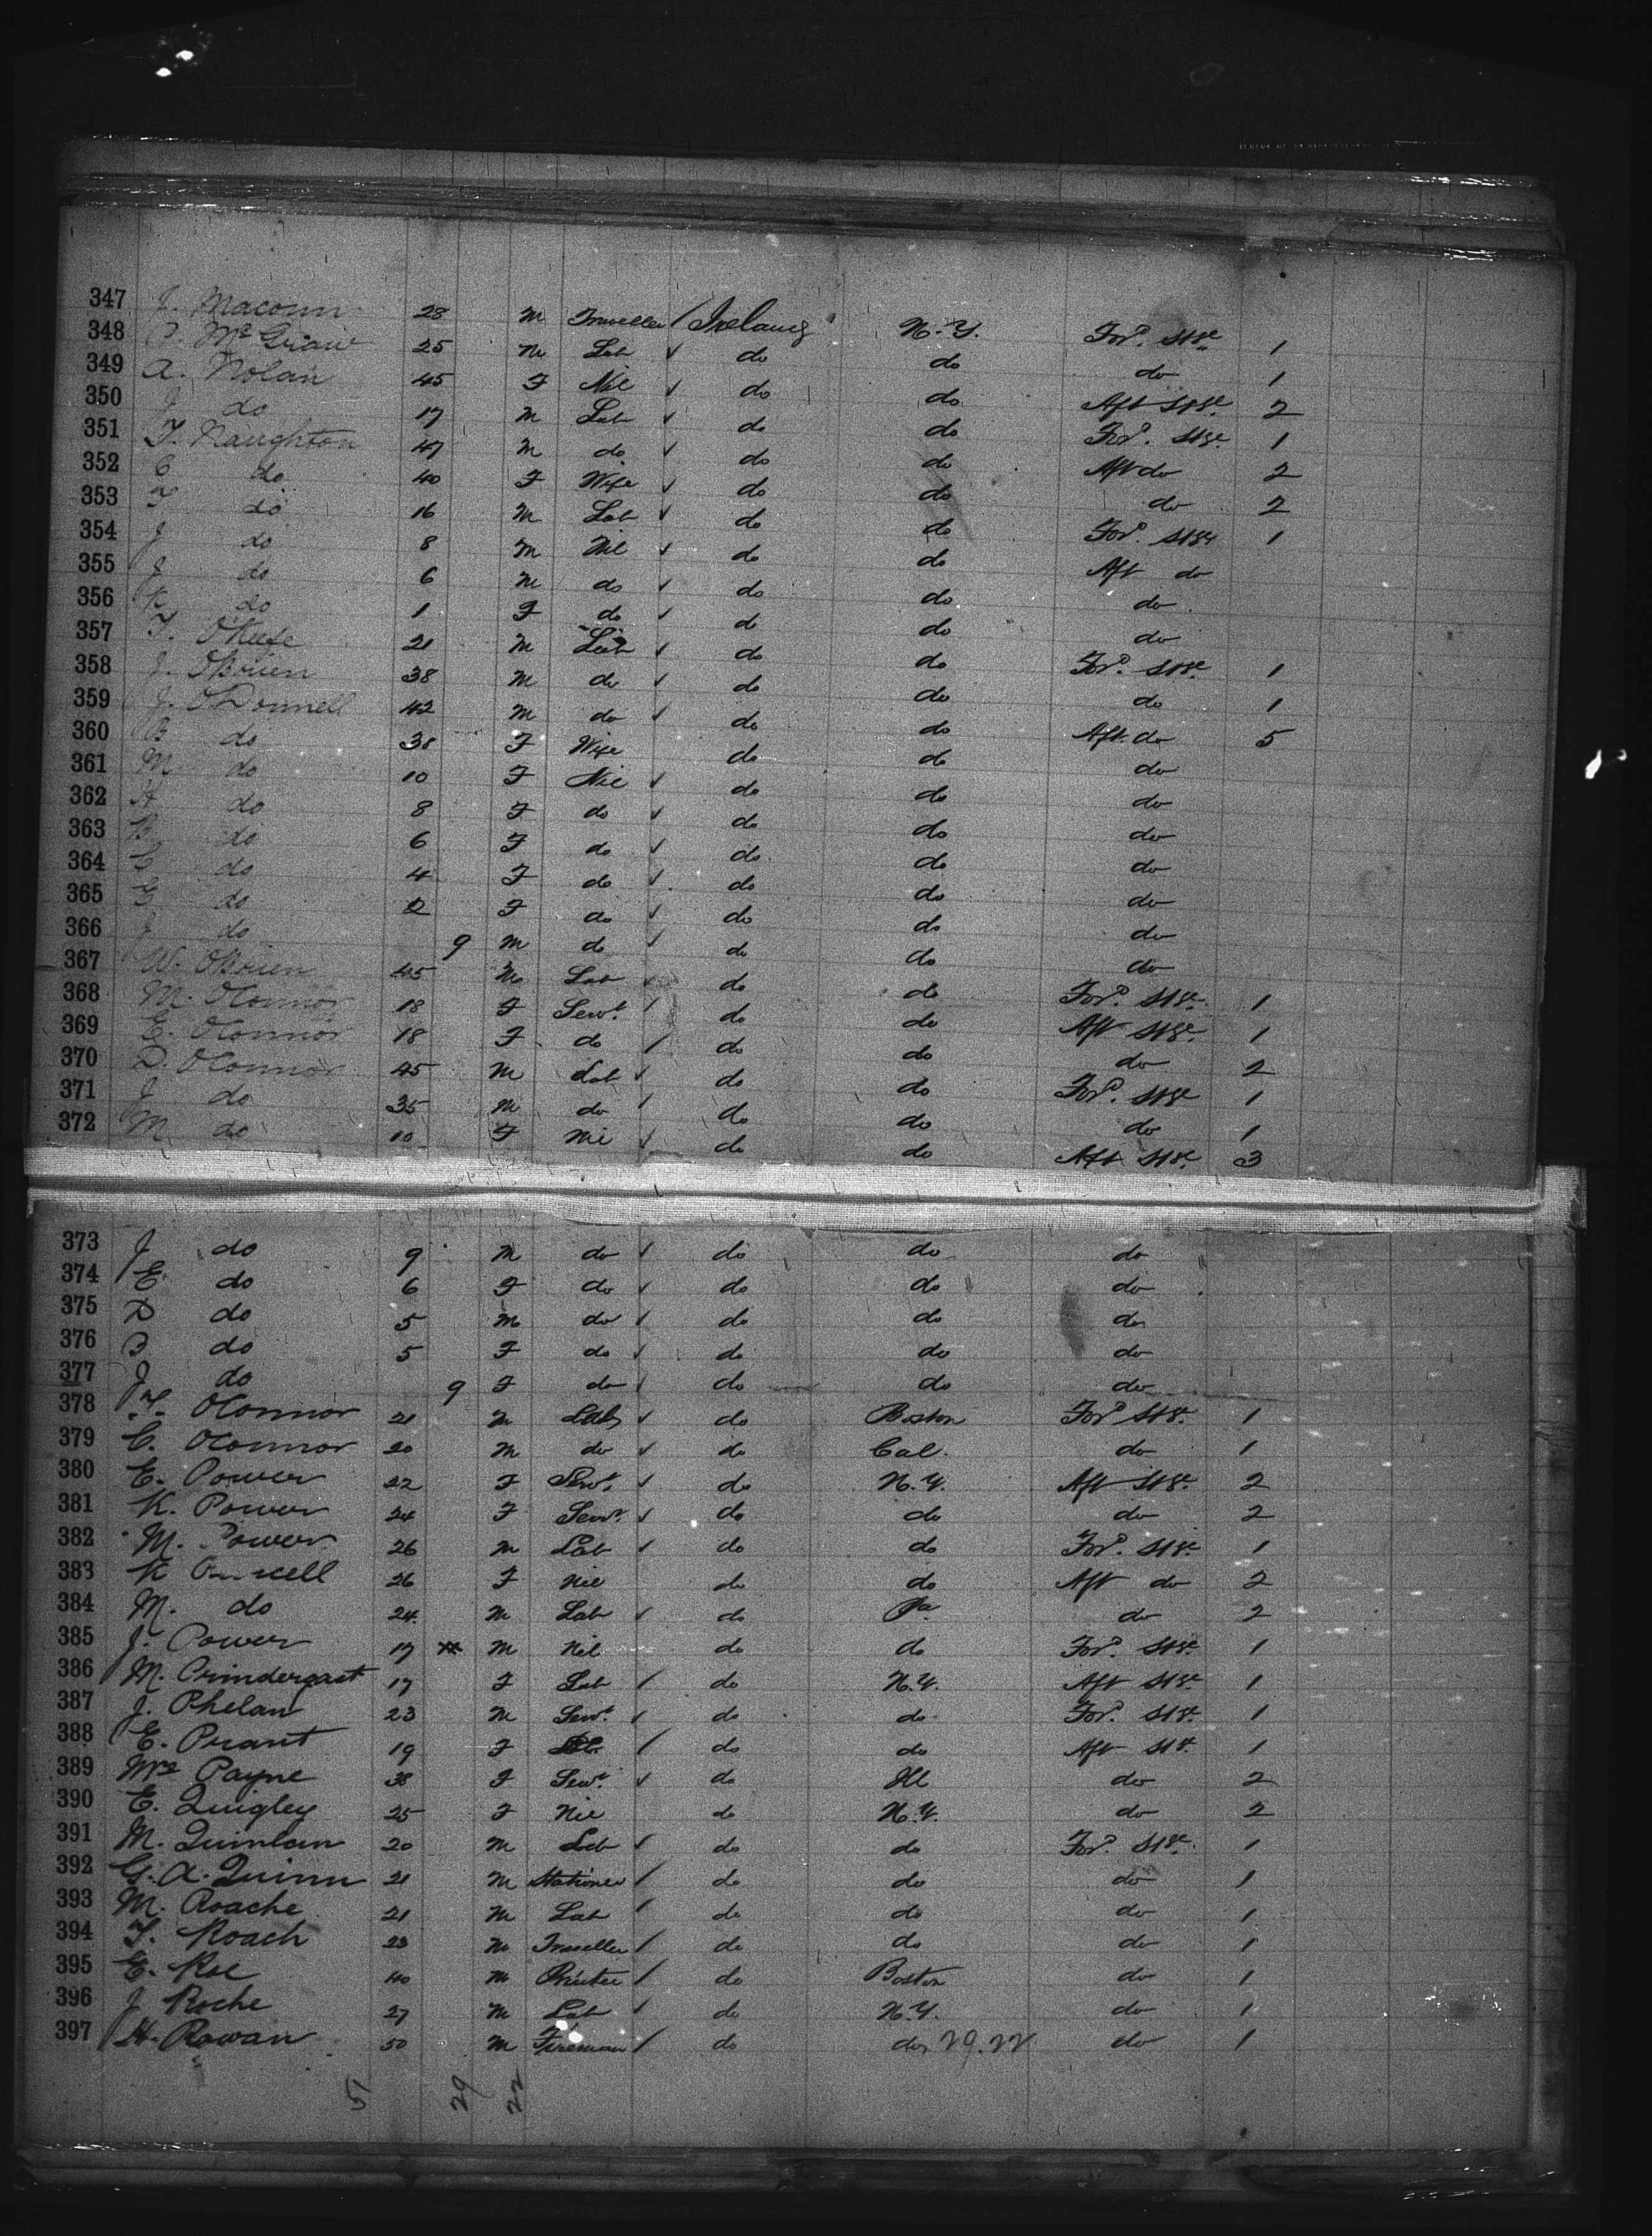 347 J. Macoun 28 M Traveller / Ireland N.Y. For'd. Stge 1
348 P. McGraw 25 M Lab ✓ do do do 1
349 A. Nolan 45 F Nil ✓ do do Aft Stge 2
350 J do 17 M Lab ✓ do do For'd. Stge 1
351 T. Naughton 47 M do ✓ do do Aft do 2
352 C do 40 F Wife ✓ do do do 2
353 T do 16 M Lab ✓ do do For'd. Stge 1
354 J do 8 M Nil ✓ do do Aft do
355 J do 6 M do ✓ do do do
356 K do 1 F do ✓ do do do
357 T. O'Keefe 21 M Lab ✓ do do For'd. Stge 1
358 J. OBrien 38 M do ✓ do do do 1
359 J. O'Donnell 42 M do ✓ do do Aft. do 5
360 B do 38 F Wife do do do
361 M do 10 F Nil ✓ do do do
362 A do 8 F do ✓ do do do
363 B do 6 F do ✓ do do do
364 C do 4 F do ✓ do do do
365 E do 2 F do ✓ do do do
366 J do 9 M do ✓ do do do
367 W. OBrien 45 M Lab ✓ do do For'd. Stge. 1
368 M. OConnor 18 F Servt. / do do Aft Stge. 1
369 E. OConnor 18 F do / do do do 2
370 D. OConnor 45 M Lab ✓ do do For'd. Stge 1
371 J do 35 M do / do do do 1
372 M do 10 F Nil ✓ do do Aft Stge. 3
373 J do 9 M do ✓ do do do
374 E. do 6 F do ✓ do do do
375 D do 5 M do ✓ do do do
376 B do 5 F do ✓ do do do
377 J do 9 F do / do do do
378 T. OConnor 21 M Lab ✓ do Boston For'd Stge. 1
379 C. OConnor 20 M do ✓ do Cal. do 1
380 E. Power 22 F Servt. ✓ do N.Y. Aft Stge. 2
381 K. Power 24 F Servt. ✓ do do do 2
382 M. Power 26 M Lab ✓ do do For'd. Stge. 1
383 K 26 F Nil do do Aft do 2
384 M. do 24 M Lab ✓ do Pa do 2
385 J. Power 17 M Nil do do For'd. Stge. 1
386 M. Prindergast 17 F Lab / do N.Y. Aft Stge 1
387 J. Phelan 23 M Servt. / do do For'd. Stge. 1
388 E. Prant 19 F / do do Aft Stge. 1
389 Mrs Payne 38 F Servt. ✓ do Ill do 2
390 E. Quigley 25 F Nil do N.Y. do 2
391 M. Quinlan 20 M Lab ✓ do do For'd. Stge. 1
392 G. A. Quinn 21 M Stationer / do do do 1
393 M. Roache 21 M Lab / do do do 1
394 T. Roach 23 M Traveller / do do do 1
395 E. Roe 40 M Printer / do Boston do 1
396 J Roche 27 M Lab ✓ do N.Y. do 1
397 H. Rowan 50 M Fireman / do do 29.22 do 1
51 29 22